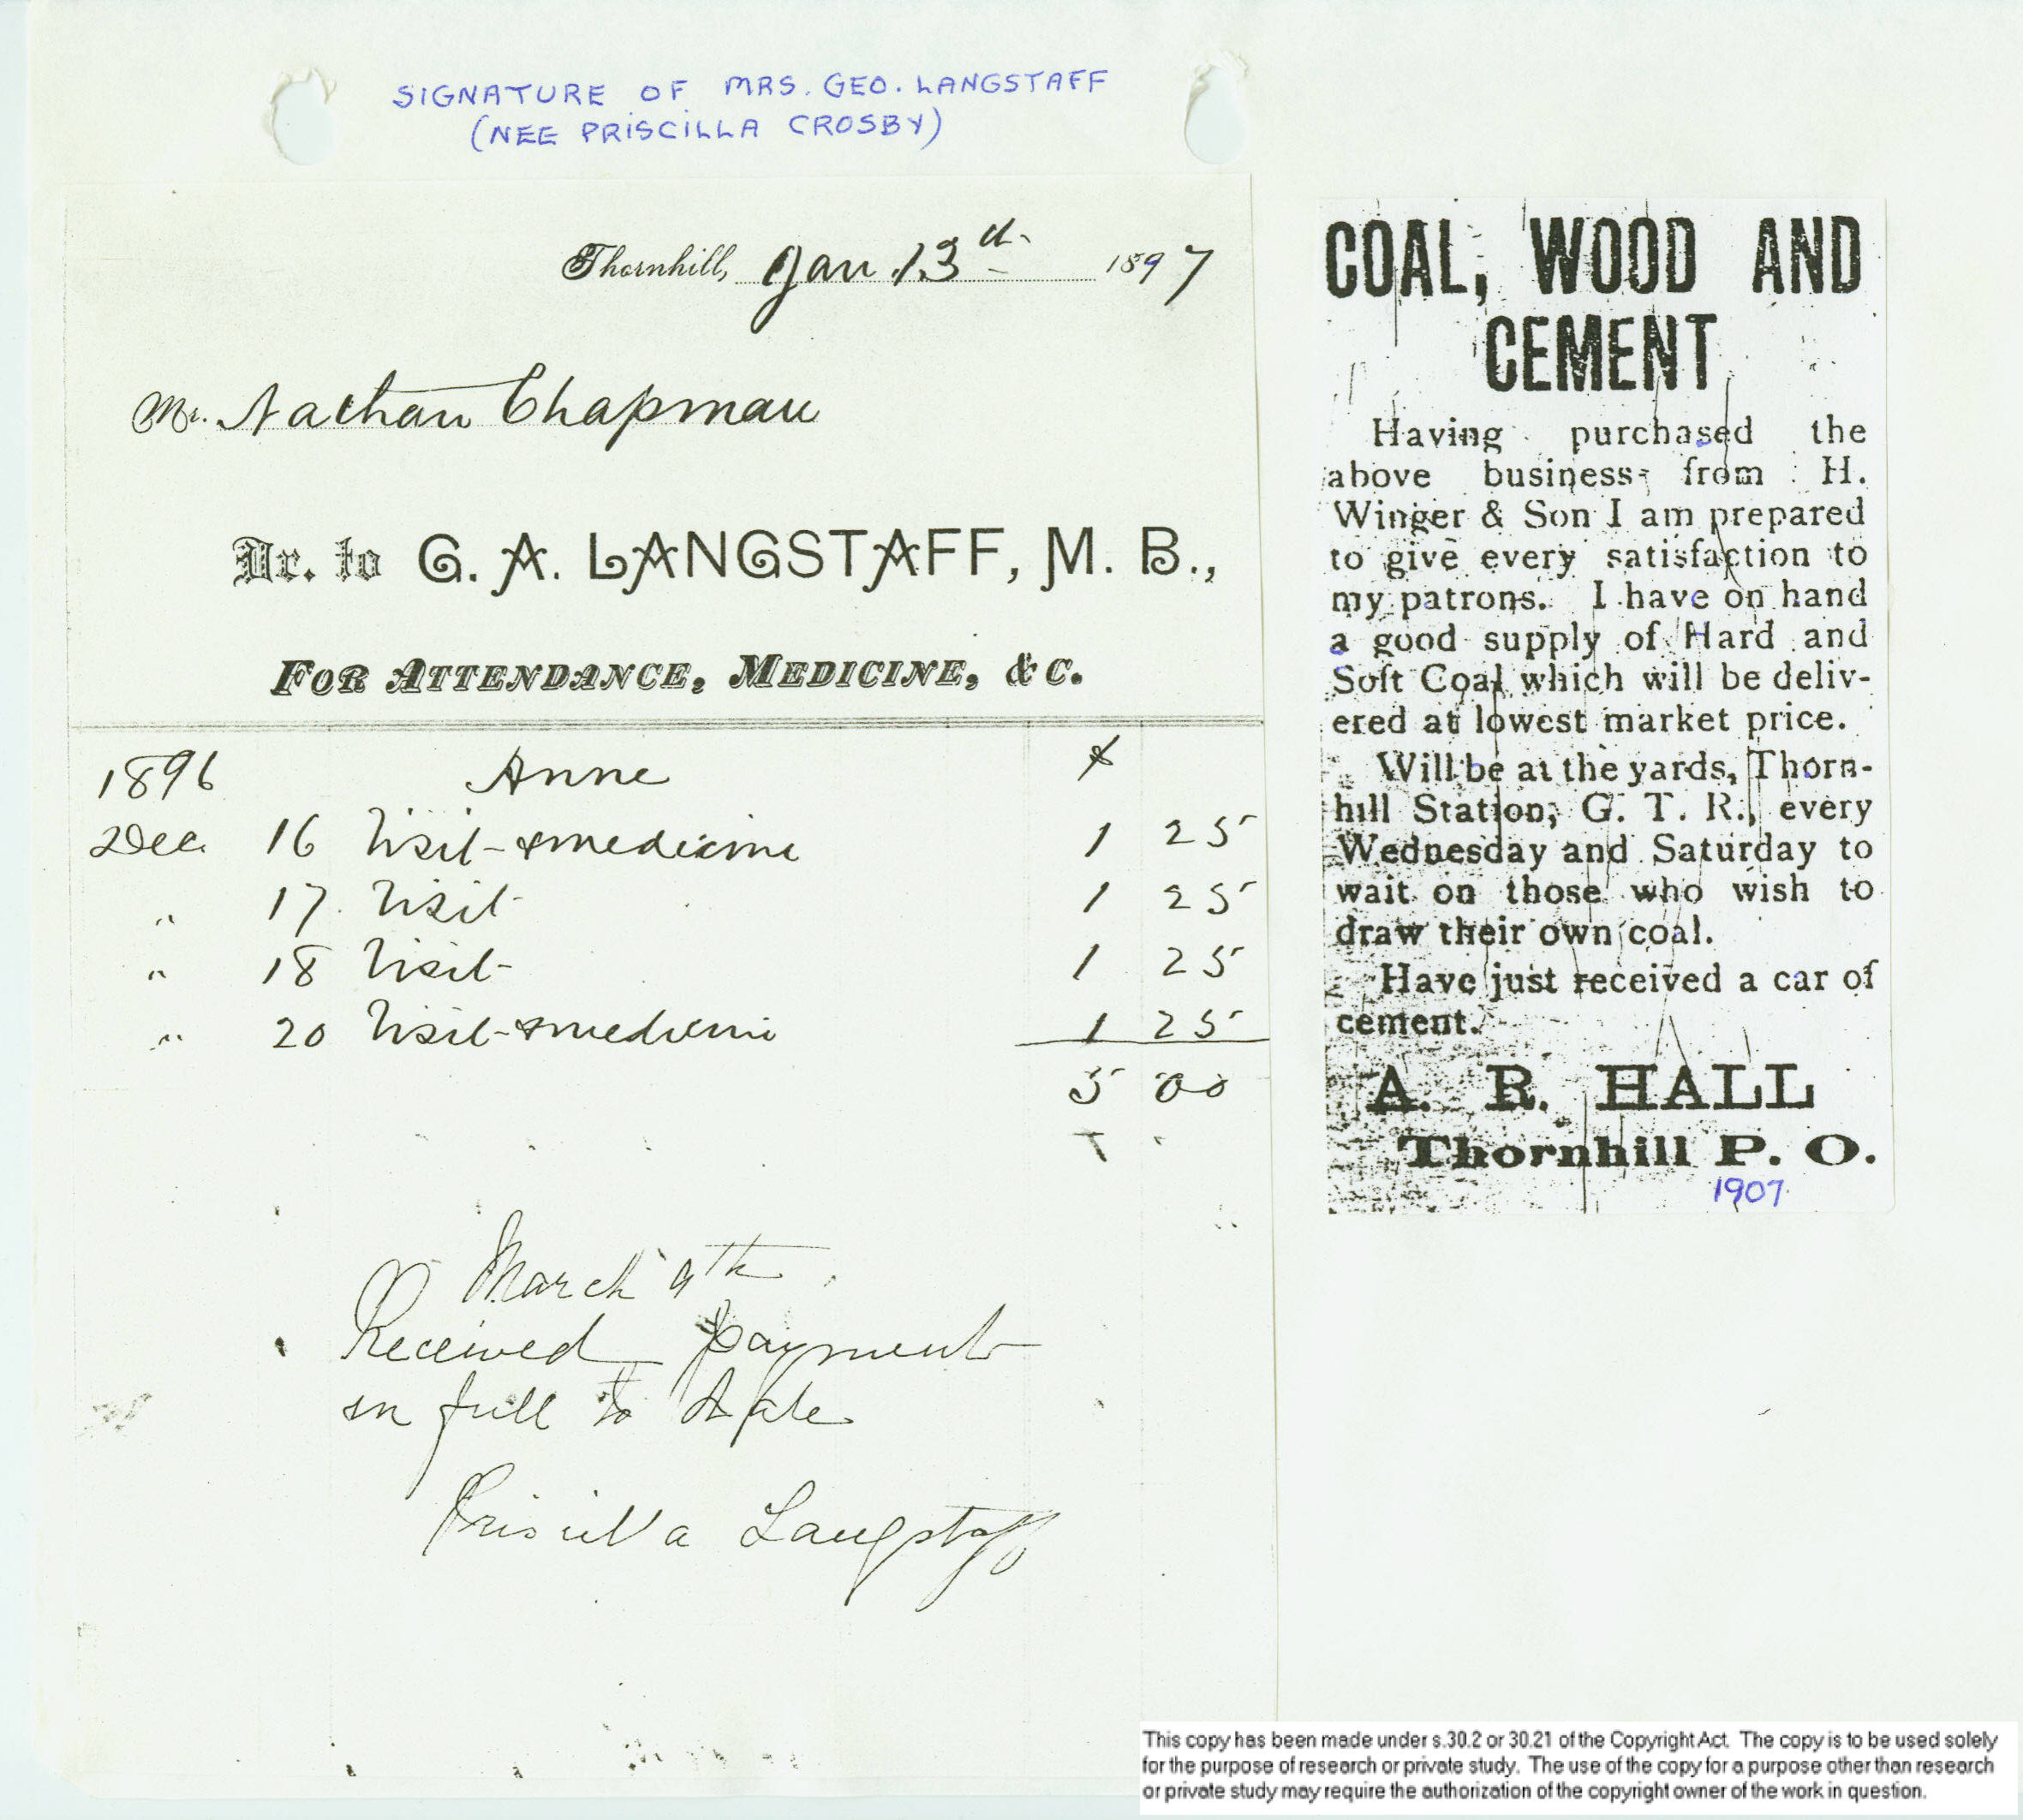 SIGNATURE OF MRS. GEO. LANGSTAFF
(NEE PRISCILLA CROSBY)
Thornhill, Jan 13th 1897
Mr. Nathan Chapman
Dr. to G. A. LANGSTAFF, M. B.,
FOR ATTENDANCE, MEDICINE, &C.
1896 Anne $
Dec. 16 Visit & medicine 1 25
" 17 Visit 1 25
" 18 Visit 1 25
" 20 Visit & medicine 1 25
5 00
March 9th
Received payment
in full to date
Priscilla Langstaff
COAL, WOOD AND
CEMENT
Having purchased the
above business from H.
Winger & Son I am prepared
to give every satisfaction to
my patrons. I have on hand
a good supply of Hard and
Soft Coal which will be deliv-
ered at lowest market price.
Will be at the yards, Thorn-
hill Station, G. T. R., every
Wednesday and Saturday to
wait on those who wish to
draw their own coal.
Have just received a car of
cement.
A. R. HALL
Thornhill P. O.
1907
This copy has been made under s.30.2 or 30.21 of the Copyright Act. The copy is to be used solely
for the purpose of research or private study. The use of the copy for a purpose other than research
or private study may require the authorization of the copyright owner of the work in question.